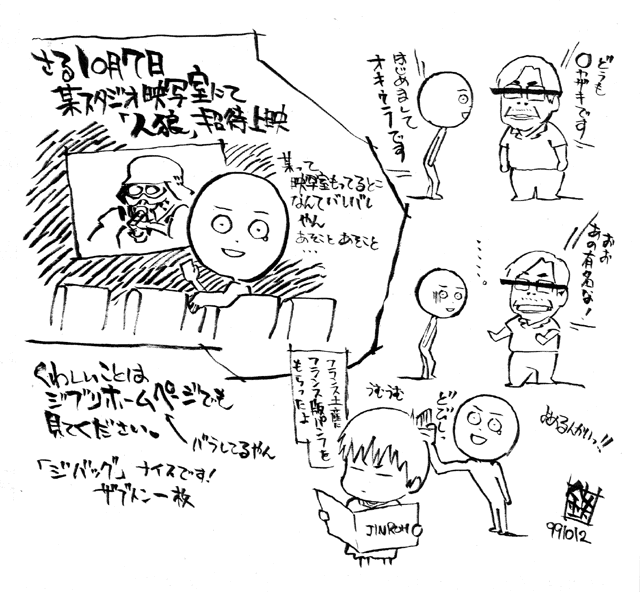 さる10月7日
某スタジオ映写室にて
「人狼」招待上映
某って、
映写室もってるとこ
なんてバレバレ
やん
あそことあそこと
…
はじめまして
オキウラです
どうも
〇ヤザキです
おお
あの有名な!
……。
くわしいことは
ジブリホームページでも
見てください。
バラしてるやん
「ジバッグ」ナイスです!
ザブトン一枚
フランス土産に
フランス版パンフを
もらったよ
うむうむ
どびしっ
JINROH
991012